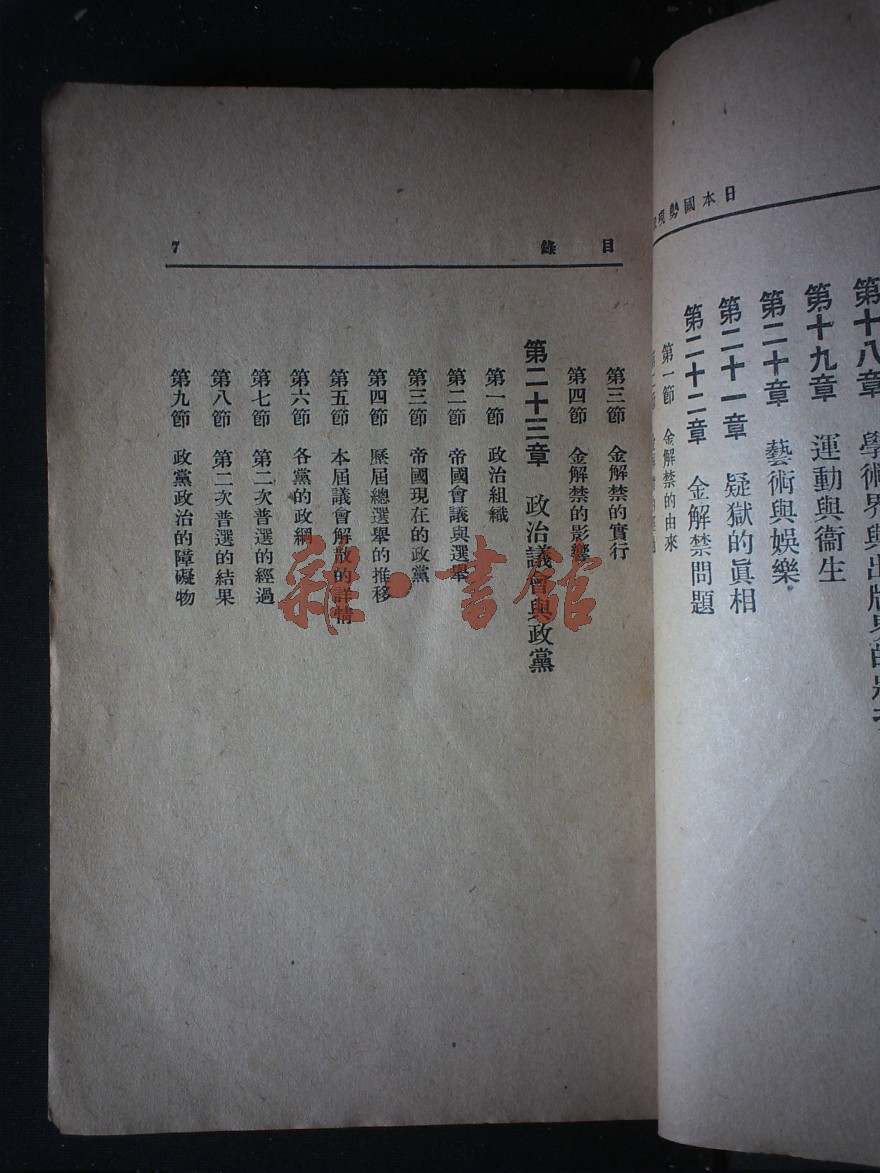 日本國勢現
第十八章　學術界與出版界的
第十九章　運動與衞生
第二十章　藝術與娛樂
第二十一章　疑獄的眞相
第二十二章　金解禁問題
第一節　金解禁的由來
目錄
7
第三節　金解禁的實行
第四節　金解禁的影響
第二十三章　政治議會與政黨
第一節　政治組織
第二節　帝國會議與選舉
第三節　帝國現在的政黨
第四節　歷屆總選舉的推移
第五節　本屆議會解散的詳情
第六節　各黨的政綱
第七節　第二次普選的經過
第八節　第二次普選的結果
第九節　政黨政治的障礙物
雜·書館